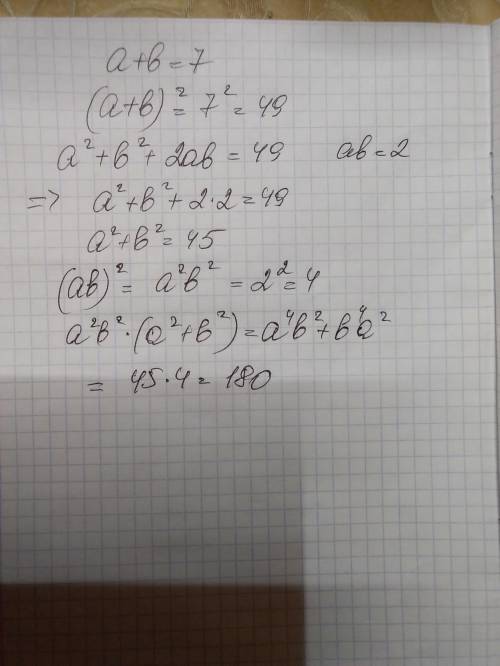 a+b=7
(a+b)²=7²=49
a²+b²+2ab=49 ab=2
=> a²+b²+2·2=49
a²+b²=45
(ab)²= a²b² =2²=4
a²b²·(a²+b²)=a⁴b²+b⁴a²
= 45·4=180